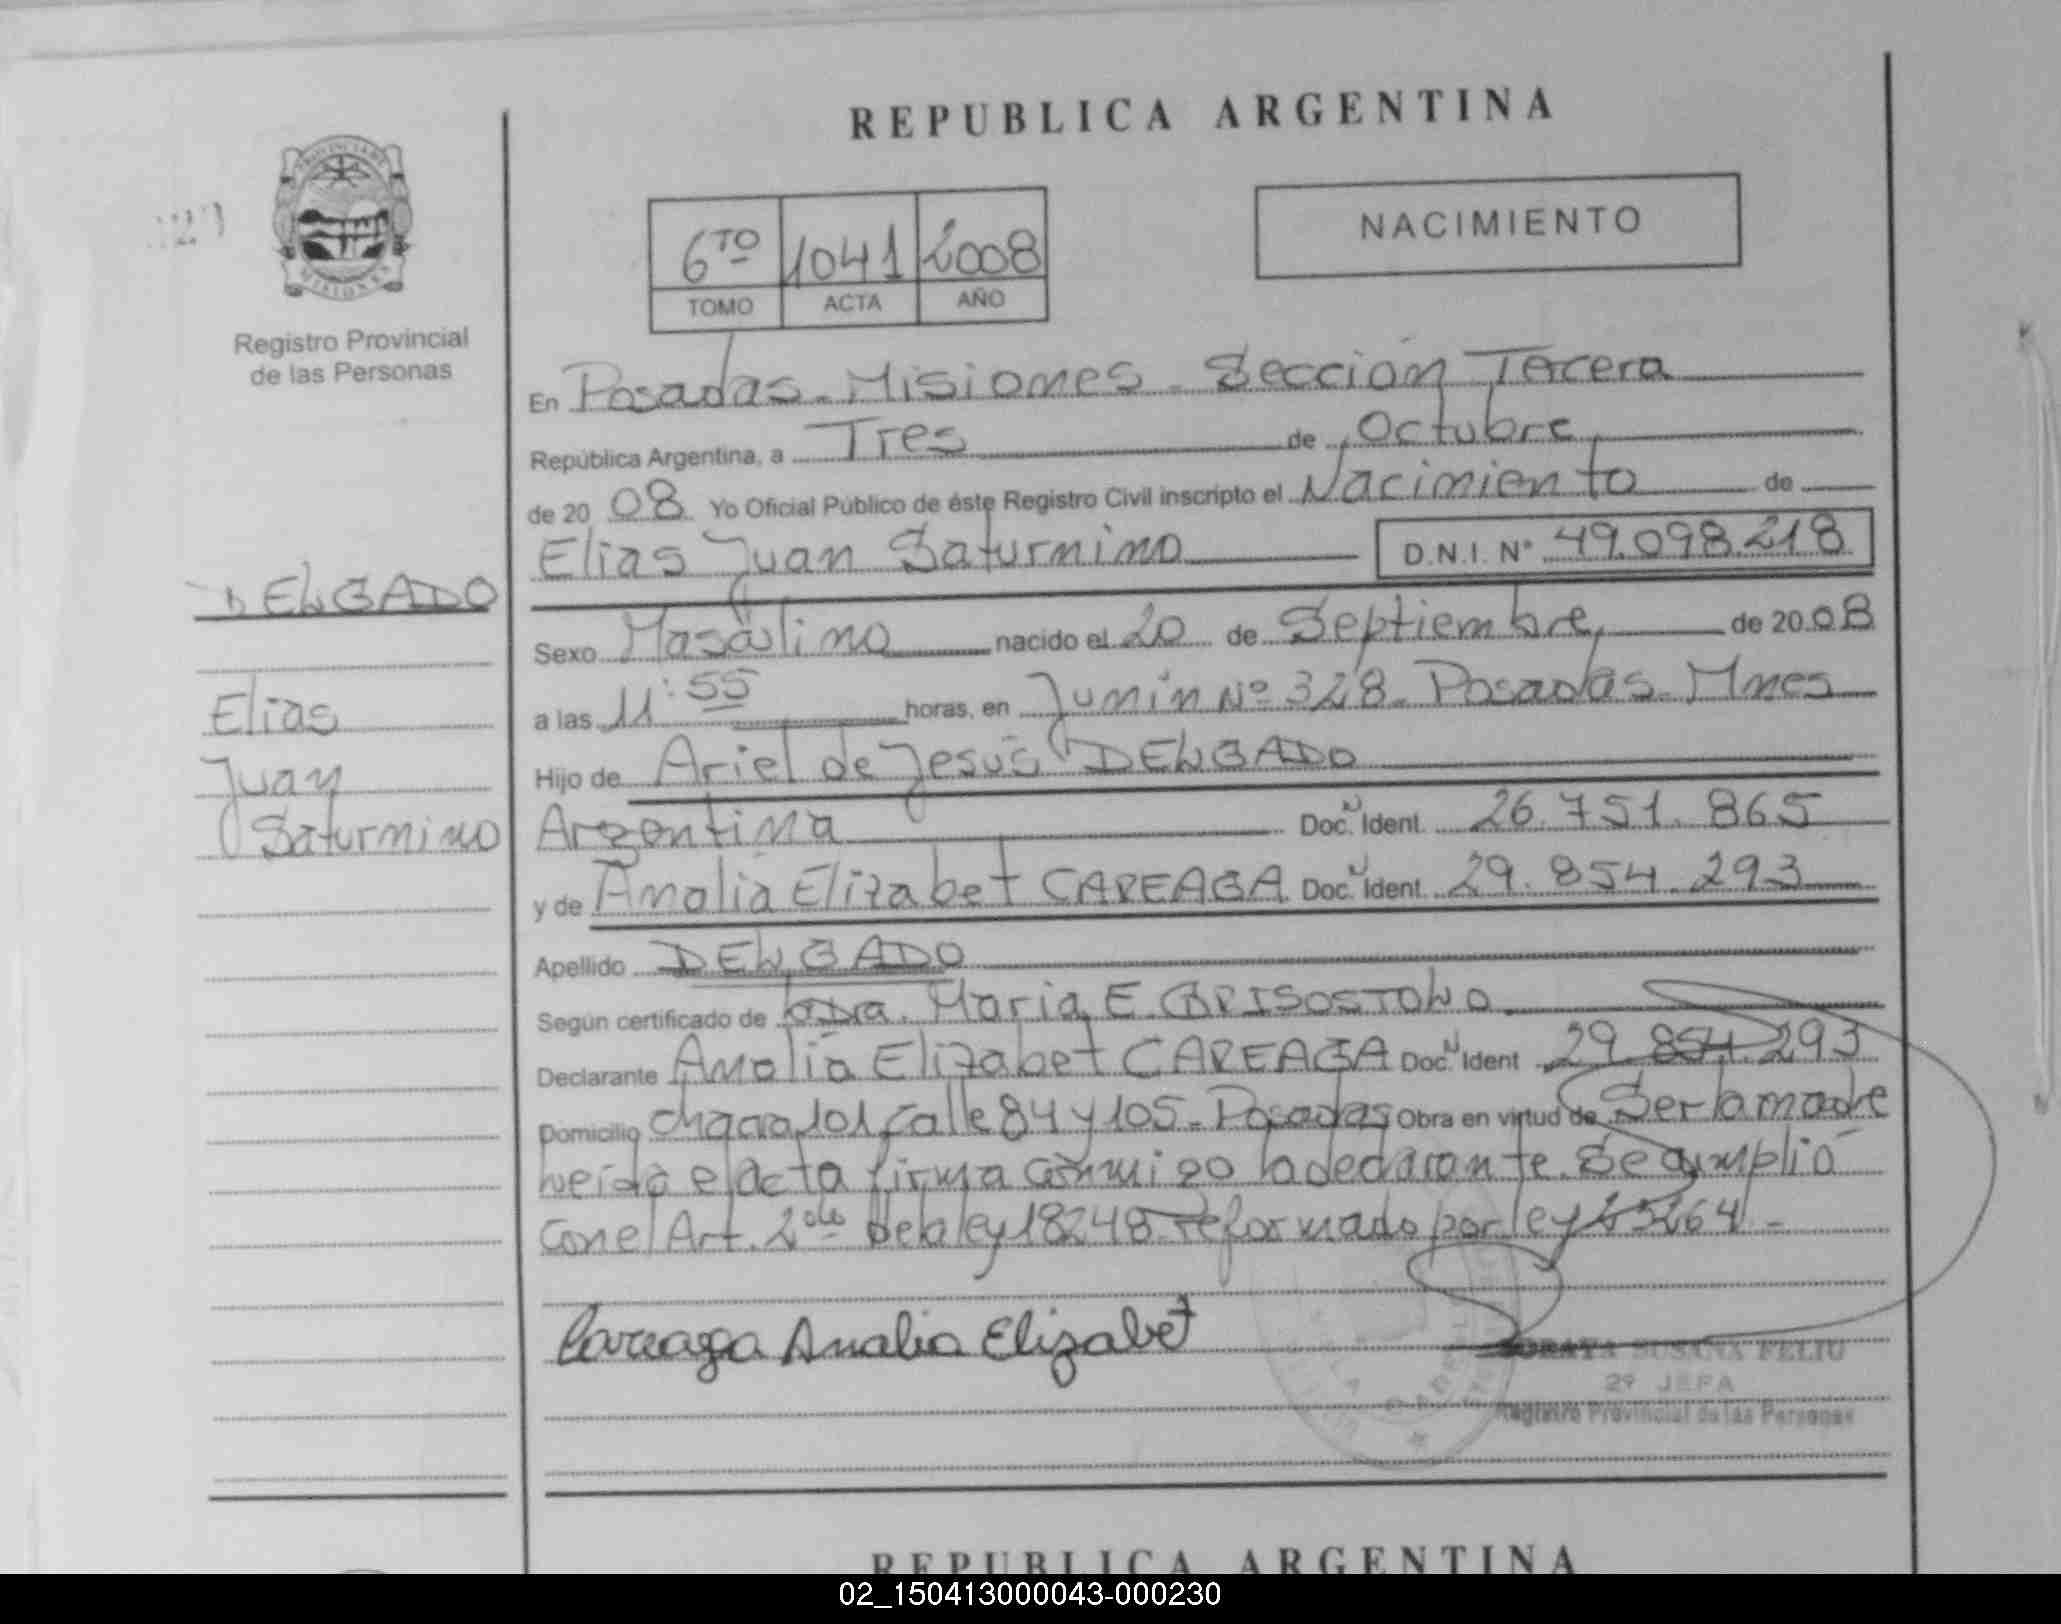 REPUBLICA ARGENTINA
PROVINCIA DE
MISIONES
Registro Provincial
de las Personas
6TO 1041 2008
TOMO ACTA AÑO
NACIMIENTO
En Posadas - Misiones - Sección Tercera
República Argentina, a Tres de Octubre
de 20 08 Yo Oficial Público de éste Registro Civil inscripto el Nacimiento de
Elias Juan Saturnino D.N.I. Nº 49.098.218
DELGADO
Elias
Juan
Saturnino
Sexo Masculino nacido el 20 de Septiembre, de 20 08
a las 11:55 horas, en Junín Nº 328 - Posadas - Mnes
Hijo de Ariel de Jesús DELGADO
Argentina Doc. Ident. 26.751.865
y de Analia Elizabet CAREAGA Doc. Ident. 29.854.293
Apellido DELGADO
Según certificado de Dra. Maria E. GRISOSTOLO
Declarante Analia Elizabet CAREAGA Doc. Ident 29.854.293
Domicilio chacra 101 calle 84 y 105 - Posadas Obra en virtud de Ser la madre
Leida el acta firma conmigo la declarante. Se cumplió
con el Art. 2do de la ley 18248 reformado por ley
Careaga Analia Elizabet
SORAYA SUSANA FELIU
2º JEFA
Registro Provincial de las Personas
REPUBLICA ARGENTINA
02_150413000043-000230